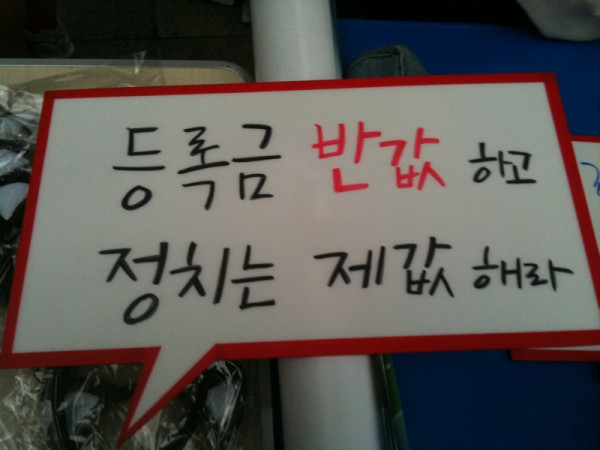 등록금 반값 하고
정치는 제값 해라